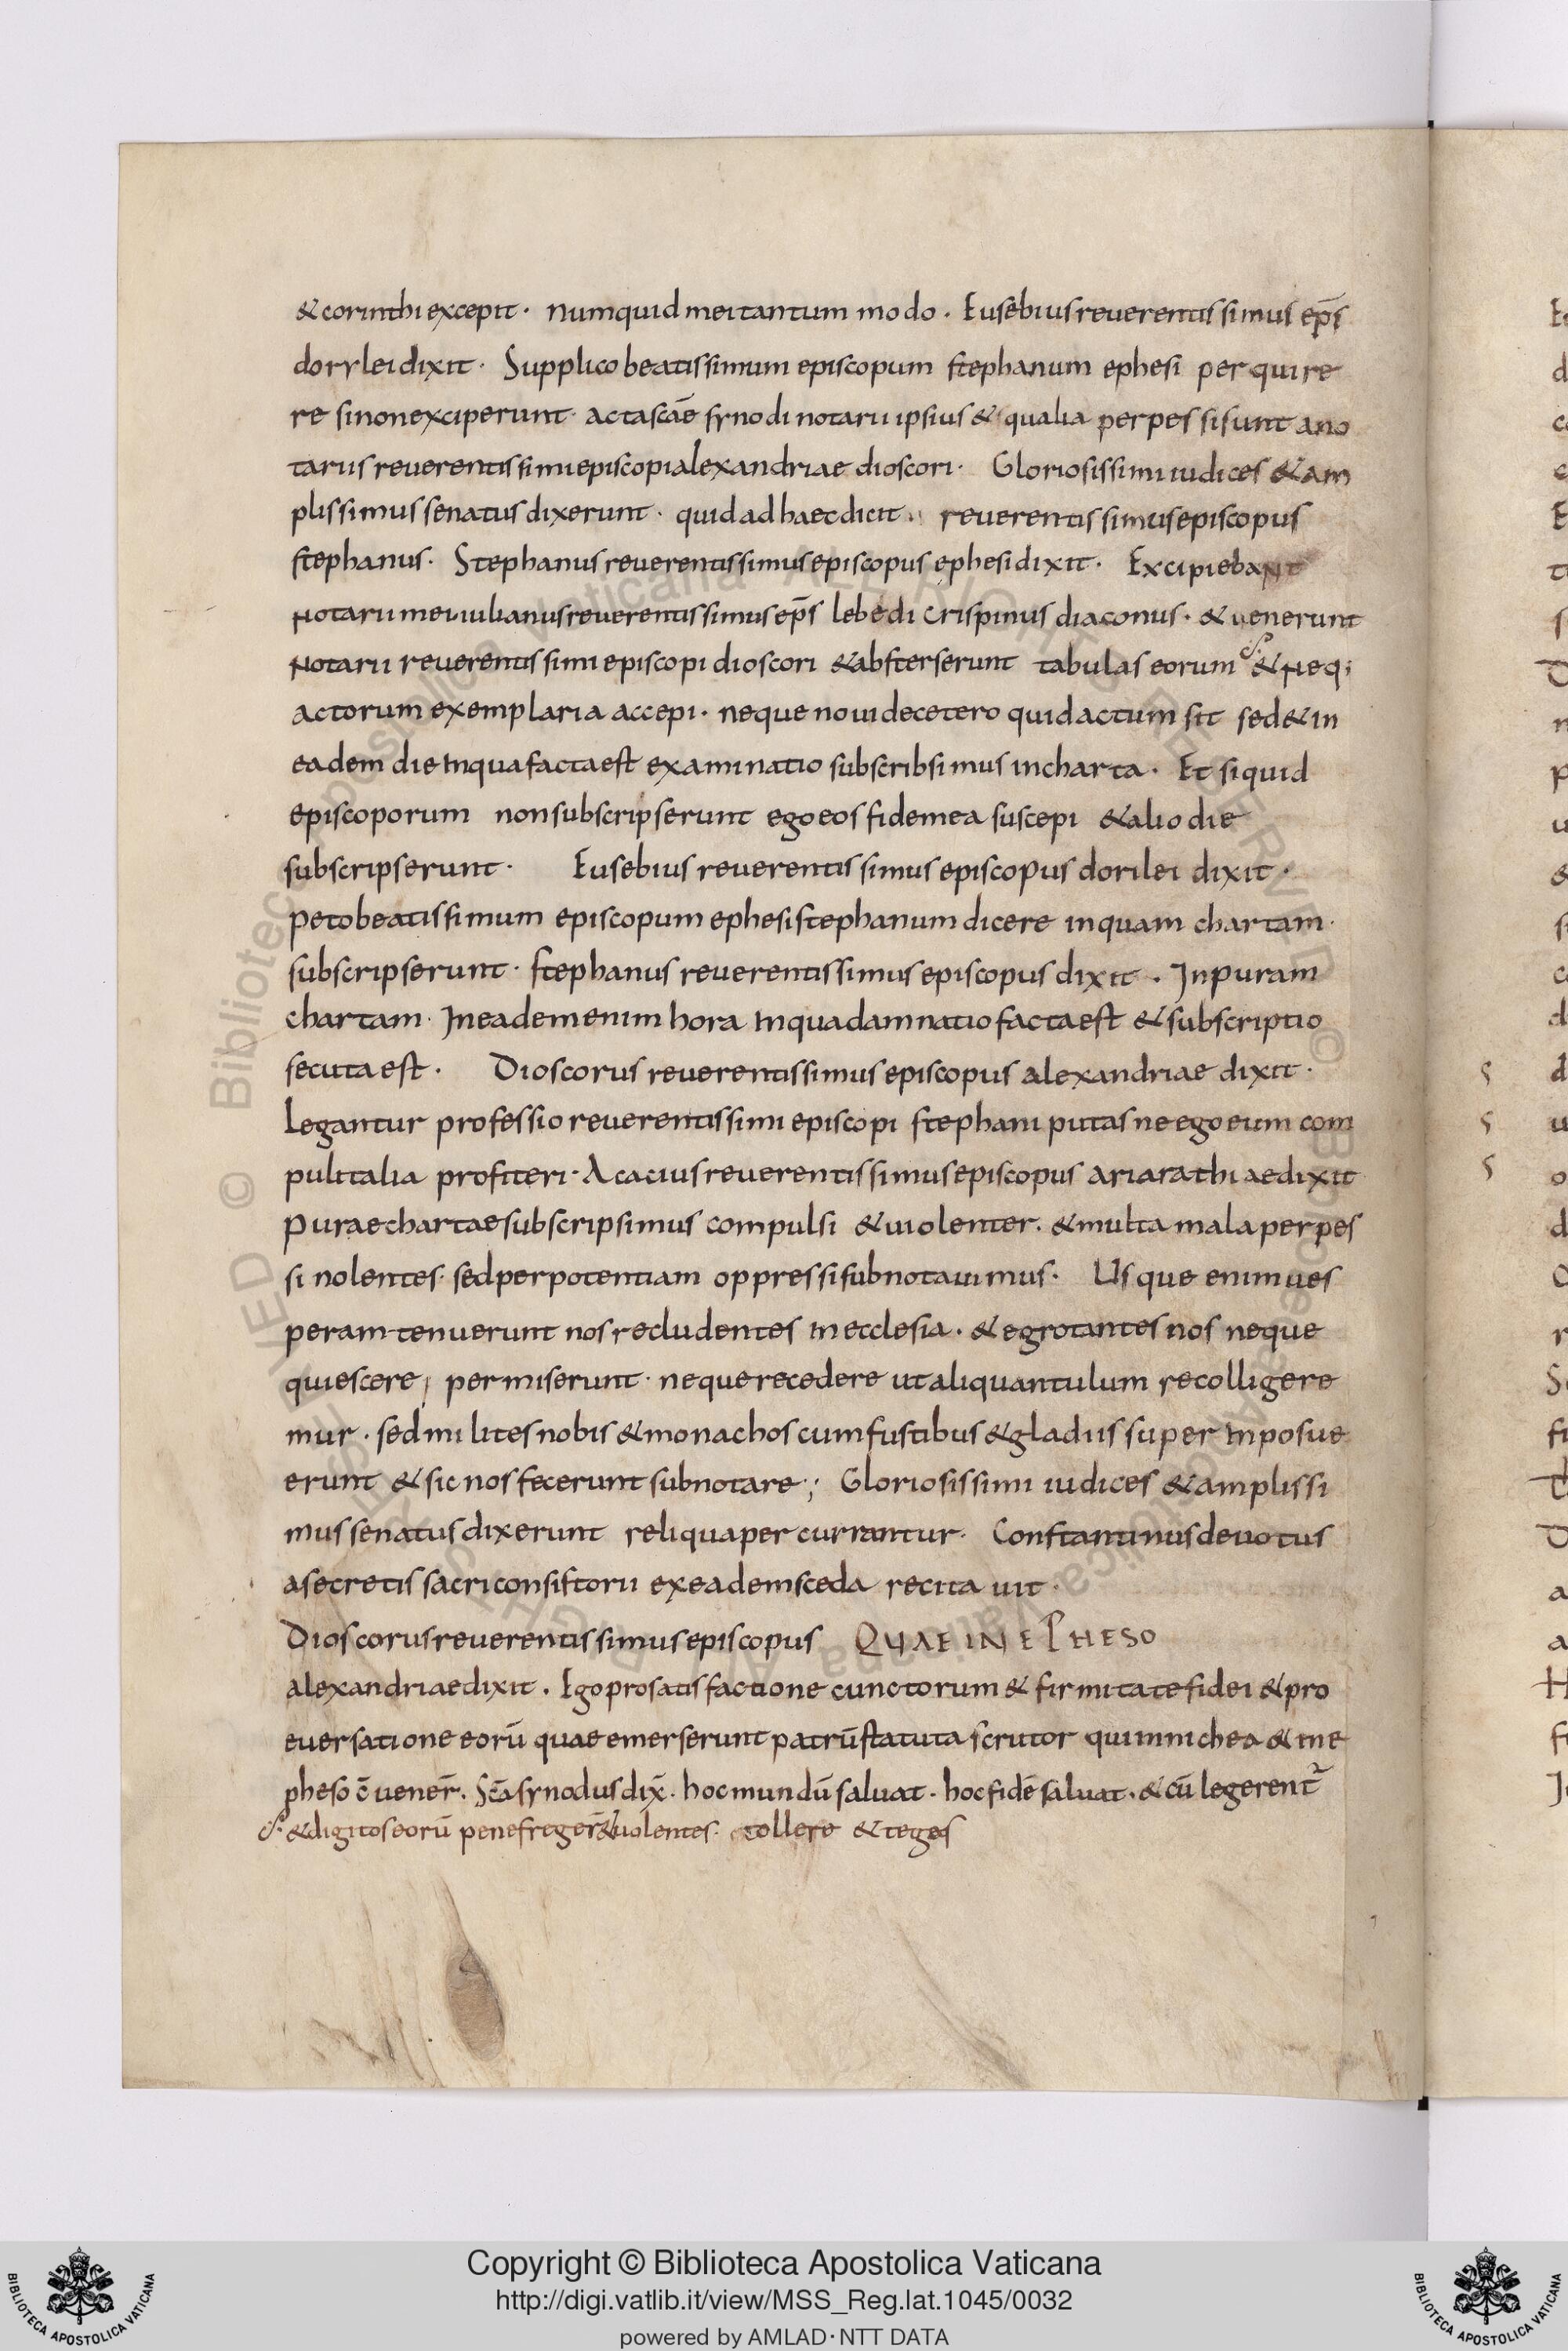 & corinthi excepit· numquid mei tantum modo· Eusebius reuerentissimus ep̄s
dorylei dixit· Supplico beatissimum episcopum stephanum ephesi perquire
re si non exciperunt· acta scāe synodi notarii ipsius & qualia perpessi sunt a no
tariis reuerentissimi episcopi alexandriae dioscori· Gloriosissimi iudices & am
plissimus senatus dixerunt· quid ad haec dicit· reuerentissimus episcopus
stephanus· Stephanus reuerentissimus episcopus ephesi dixit· Excipiebant
Notarii mei iulianus reuerentissimus ep̄s lebedi crispinus diaconus· & uenerunt
Notarii reuerentissimi episcopi dioscori & absterserunt tabulas eorum & Neq;
actorum exemplaria accepi· neque noui de cetero quid actum sit sed & in
eadem die in qua facta est examinatio subscribsimus in charta· Et si quid
episcoporum non subscripserunt ego eos fide mea suscepi & alio die
subscripserunt· Eusebius reuerentissimus episcopus dorilei dixit·
peto beatissimum episcopum ephesi stephanum dicere in quam chartam·
subscripserunt· stephanus reuerentissimus episcopus dixit· In puram
chartam· In eadem enim hora in qua damnatio facta est & subscriptio
secuta est· Dioscorus reuerentissimus episcopus alexandriae dixit·
Legantur professio reuerentissimi episcopi stephani putasne ego eum com
puli talia profiteri· Acacius reuerentissimus episcopus ariarathiae dixit
purae chartae subscripsimus compulsi & uiolenter· & multa mala perpes
si nolentes· sed per potentiam oppressi subnotauimus· Usque enim ues
peram tenuerunt nos recludentes in ecclesia· & egrotantes nos neque
quiescere permiserunt· neque recedere ut aliquantulum recolligere
mur· sed milites nobis & monachos cum fustibus & gladiis super inposue
erunt & sic nos fecerunt subnotare; Gloriosissimi iudices & amplissi
mus senatus dixerunt reliqua percurrantur· Constantinus deuotus
a secretis sacri consistorii ex eadem sceda recitauit·
Dioscorus reuerentissimus episcopus QUAE IN EPHESO
alexandriae dixit· Ego pro satisfactione cunctorum & firmitate fidei & pro
euersatione eorū quae emerserunt patrū statuta scrutor qui in nichea & in e
pheso c̄ uener̄· Sc̄a synodus dix̄· hoc mundū saluat· hoc fidē saluat· & cū legerent̄
& digitos eorū pene freger̄ & uolentes· tollere & teges
Copyright © Biblioteca Apostolica Vaticana
http://digi.vatlib.it/view/MSS_Reg.lat.1045/0032
powered by AMLAD·NTT DATA
BIBLIOTECA APOSTOLICA VATICANA
BIBLIOTECA APOSTOLICA VATICANA